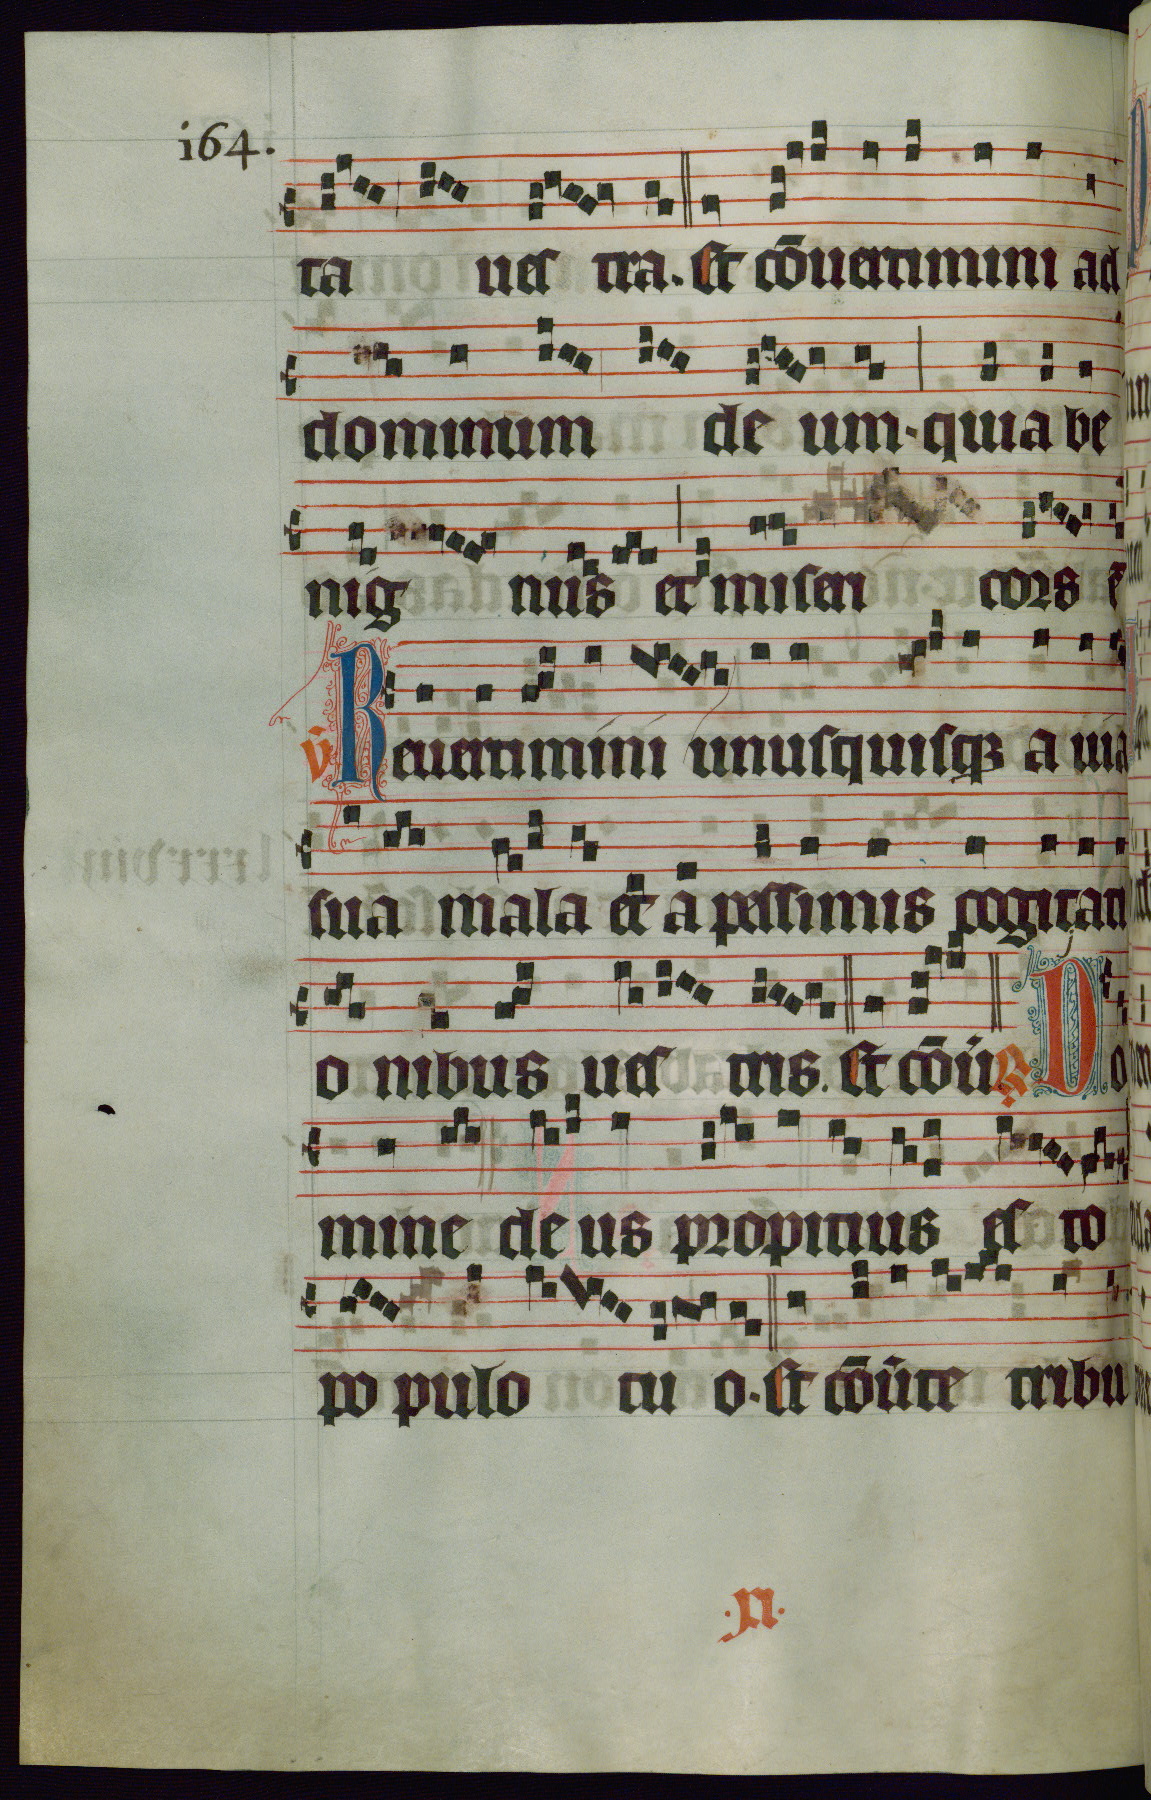 i64.
ta ues tra. Et cōuertimini ad
dominum de um. quia be
nig nus et miseri cors ē
v̄ Reuertimini unusquisqꝫ a uia
sua mala et a pessimis cogitati
o nibus ues tris. Et cōū ℟ Do
mine de us propitius es to
po pulo tu o. Et cōūte tribu